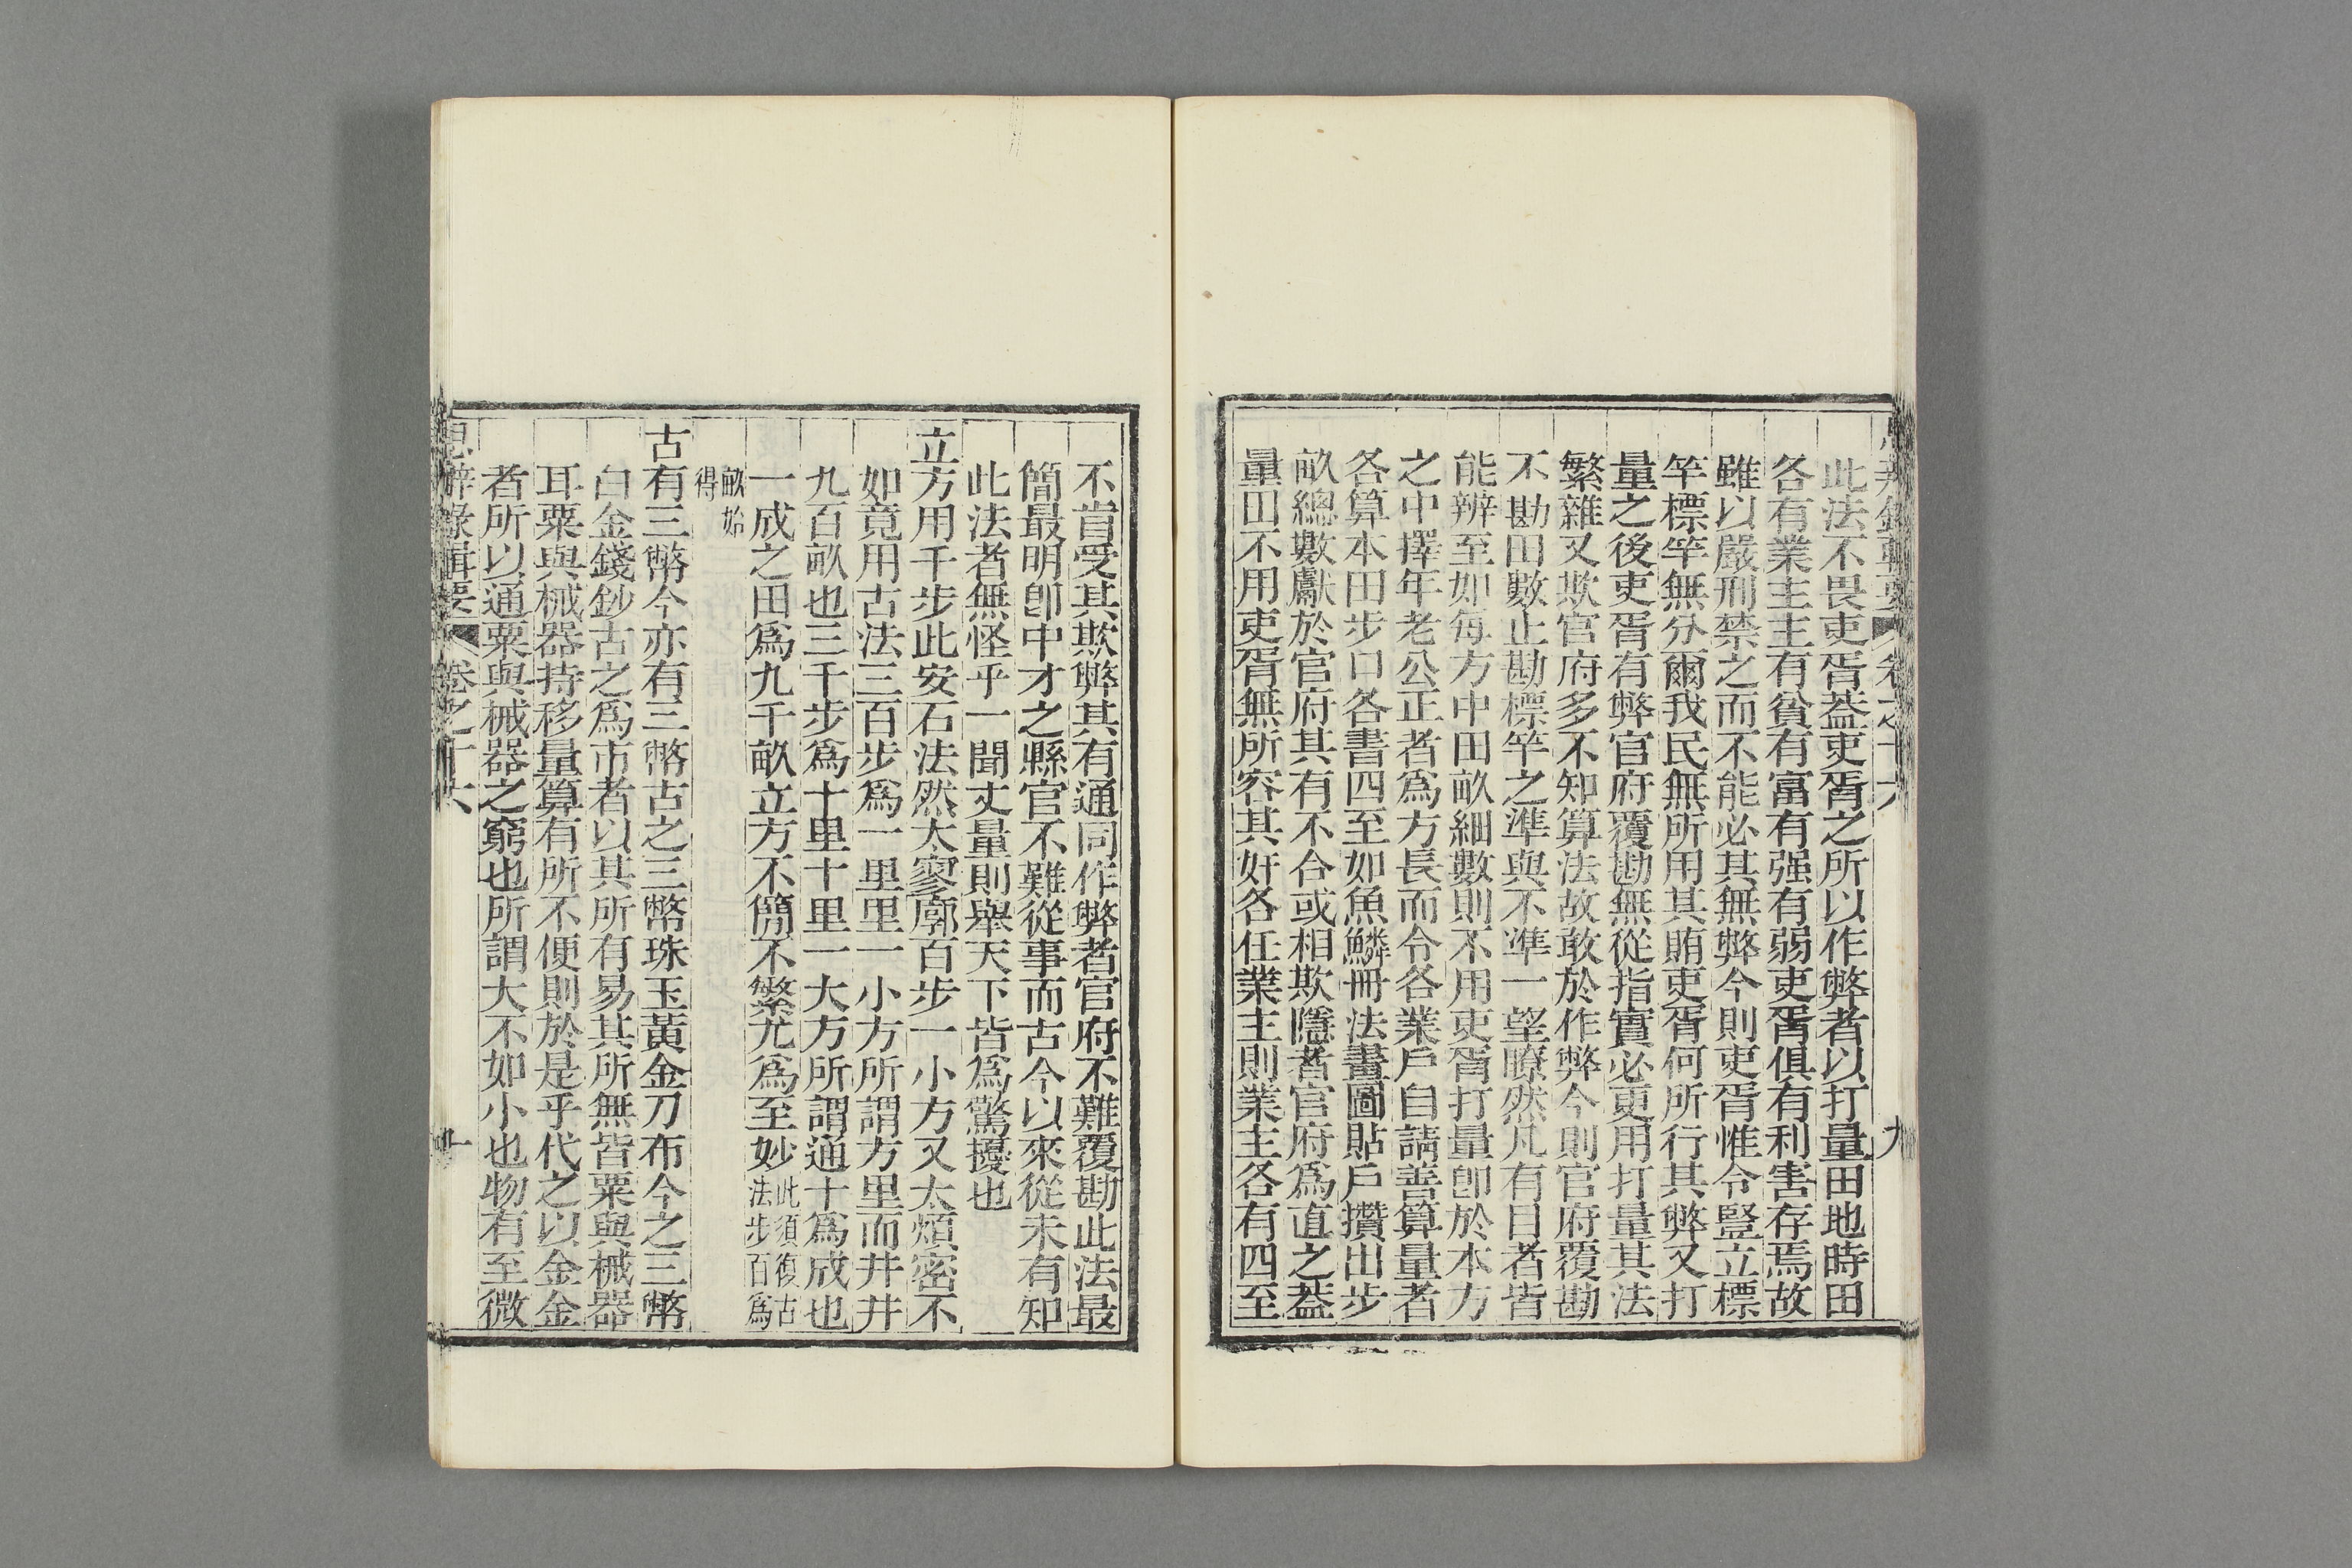 此法不畏吏胥葢吏胥之所以作弊者以打量田地時田
各有業主主有貧有富有强有弱吏胥俱有利害存焉故
雖以嚴刑禁之而不能必其無弊今則吏胥惟令豎立標
竿標竿無分爾我民無所用其賄吏胥何所行其弊又打
量之後吏胥有弊官府覆勘無從指實必更用打量其法
繁雜又欺官府多不知算法故敢於作弊今則官府覆勘
不勘田數止勘標竿之準與不準一望瞭然凡有目者皆
能辨至如每方中田畝細數則不用吏胥打量卽於本方
之中擇年老公正者爲方長而令各業戶自請善算量者
各算本田步口各書四至如魚鱗冊法畫圖貼戶攢出步
畝總數獻於官府其有不合或相欺隱者官府爲直之葢
量田不用吏胥無所容其奸各任業主則業主各有四至
不肯受其欺弊其有通同作弊者官府不難覆勘此法最
簡最明卽中才之縣官不難從事而古今以來從未有知
此法者無怪乎一聞丈量則舉天下皆爲驚擾也
立方用千步此安石法然太寥廓百步一小方又太煩密不
如竟用古法三百步爲一里里一小方所謂方里而井井
九百畝也三千步爲十里十里一大方所謂通十爲成也
一成之田爲九千畝立方不簡不繁尤爲至妙此須復古
法步百爲
畝始
得
古有三幣今亦有三幣古之三幣珠玉黃金刀布今之三幣
白金錢鈔古之爲市者以其所有易其所無皆粟與械器
耳粟與械器持移量算有所不便則於是乎代之以金金
者所以通粟與械器之窮也所謂大不如小也物有至微
思辨錄輯要 卷之十六 十